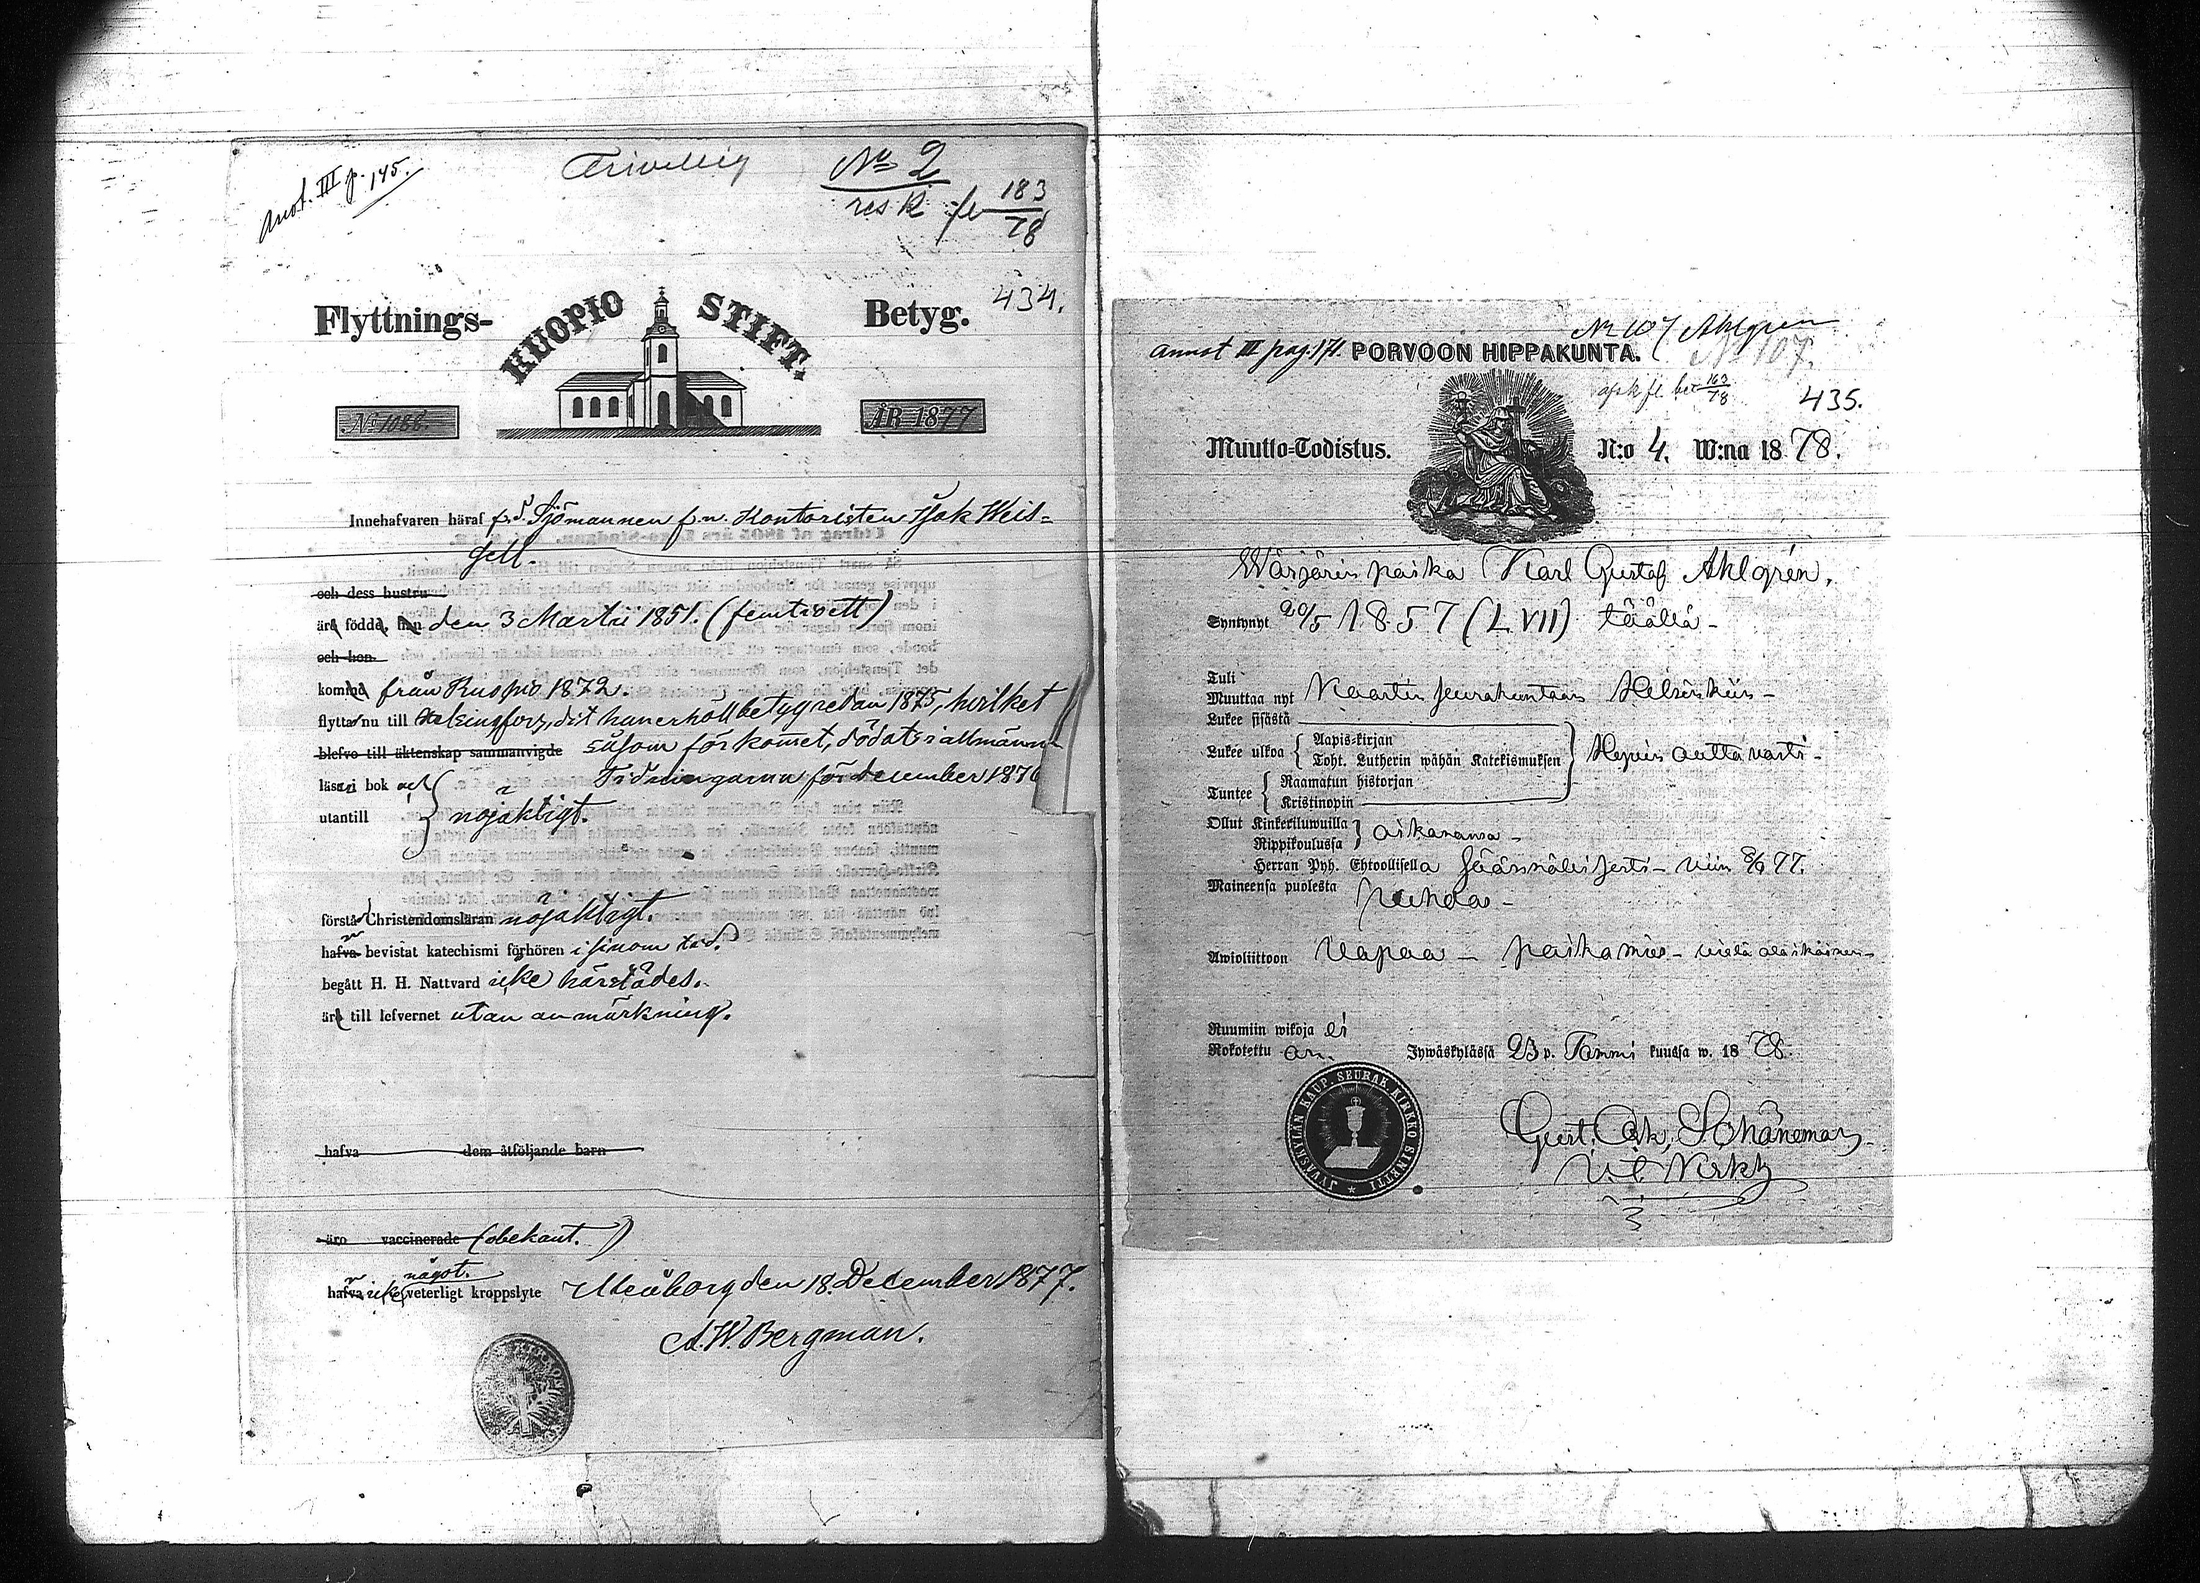 Anot. III p. 145.
Frivillig
No 2
res k fl 183/78
434.
Flyttnings- KUOPIO STIFT. Betyg.
No 1088.
ÅR 1877
Innehafvaren häraf f.d. Sjömannen f.n. Kontoristen Isak Weis=
sell.
och dess hustru
äro födde, han den 3 Martii 1851. (femtioett)
och hon
komne från Kuopio 1872.
flytta nu till Helsingfors, dit han erhöll betyg redan 1875, hvilket
blefvo till äktenskap sammanvigde såsom förkommet, dödats i allmänna
läsa i bok och Tidningarna för december 1876
utantill nöjaktigt.
förstå Christendomsläran nöjaktigt.
hafva bevistat katechismi förhören i sinom tid.
begått H. H. Nattvard icke härstädes.
äro till lefvernet utan anmärkning.
hafva dem åtföljande barn
äro vaccinerade (obekant.)
något.
hafva icke veterligt kroppslyte Uleåborg den 18. December 1877.
A.W. Bergman.
No 107 Ahlgren
annot III pag. 171. PORVOON HIPPAKUNTA. No 107.
afsk fl. bet 163/78
435.
Muutto=Todistus. N:o 4. W:na 1878.
Wärjärin poika Karl Gustaf Ahlgrén.
Syntynyt 20/5 1857 (LVII) täällä -
Tuli
Muuttaa nyt Kaartin seurakuntaan Helsinkiin -
Lukee sisästä
Lukee ulkoa Aapis=kirjan
Toht. Lutherin wähän Katekismuksen
Tuntee Raamatun historjan
Kristinopin
Ollut Kinkeriluwuilla
Rippikoulussa aikanansa -
Herran Pyh. Ehtoollisella säännöllisesti - viim 8/6 77.
Maineensa puolesta puhdas -
Awioliittoon Vapaa - poikamies - vielä alaikäinen -
Ruumiin wikoja ei
Rokotettu on. Jywäskylässä 23 p. Tammi kuussa w. 1878.
JYVÄSKYLÄN KAUP. SEURAK. KIRKKO SINETTI